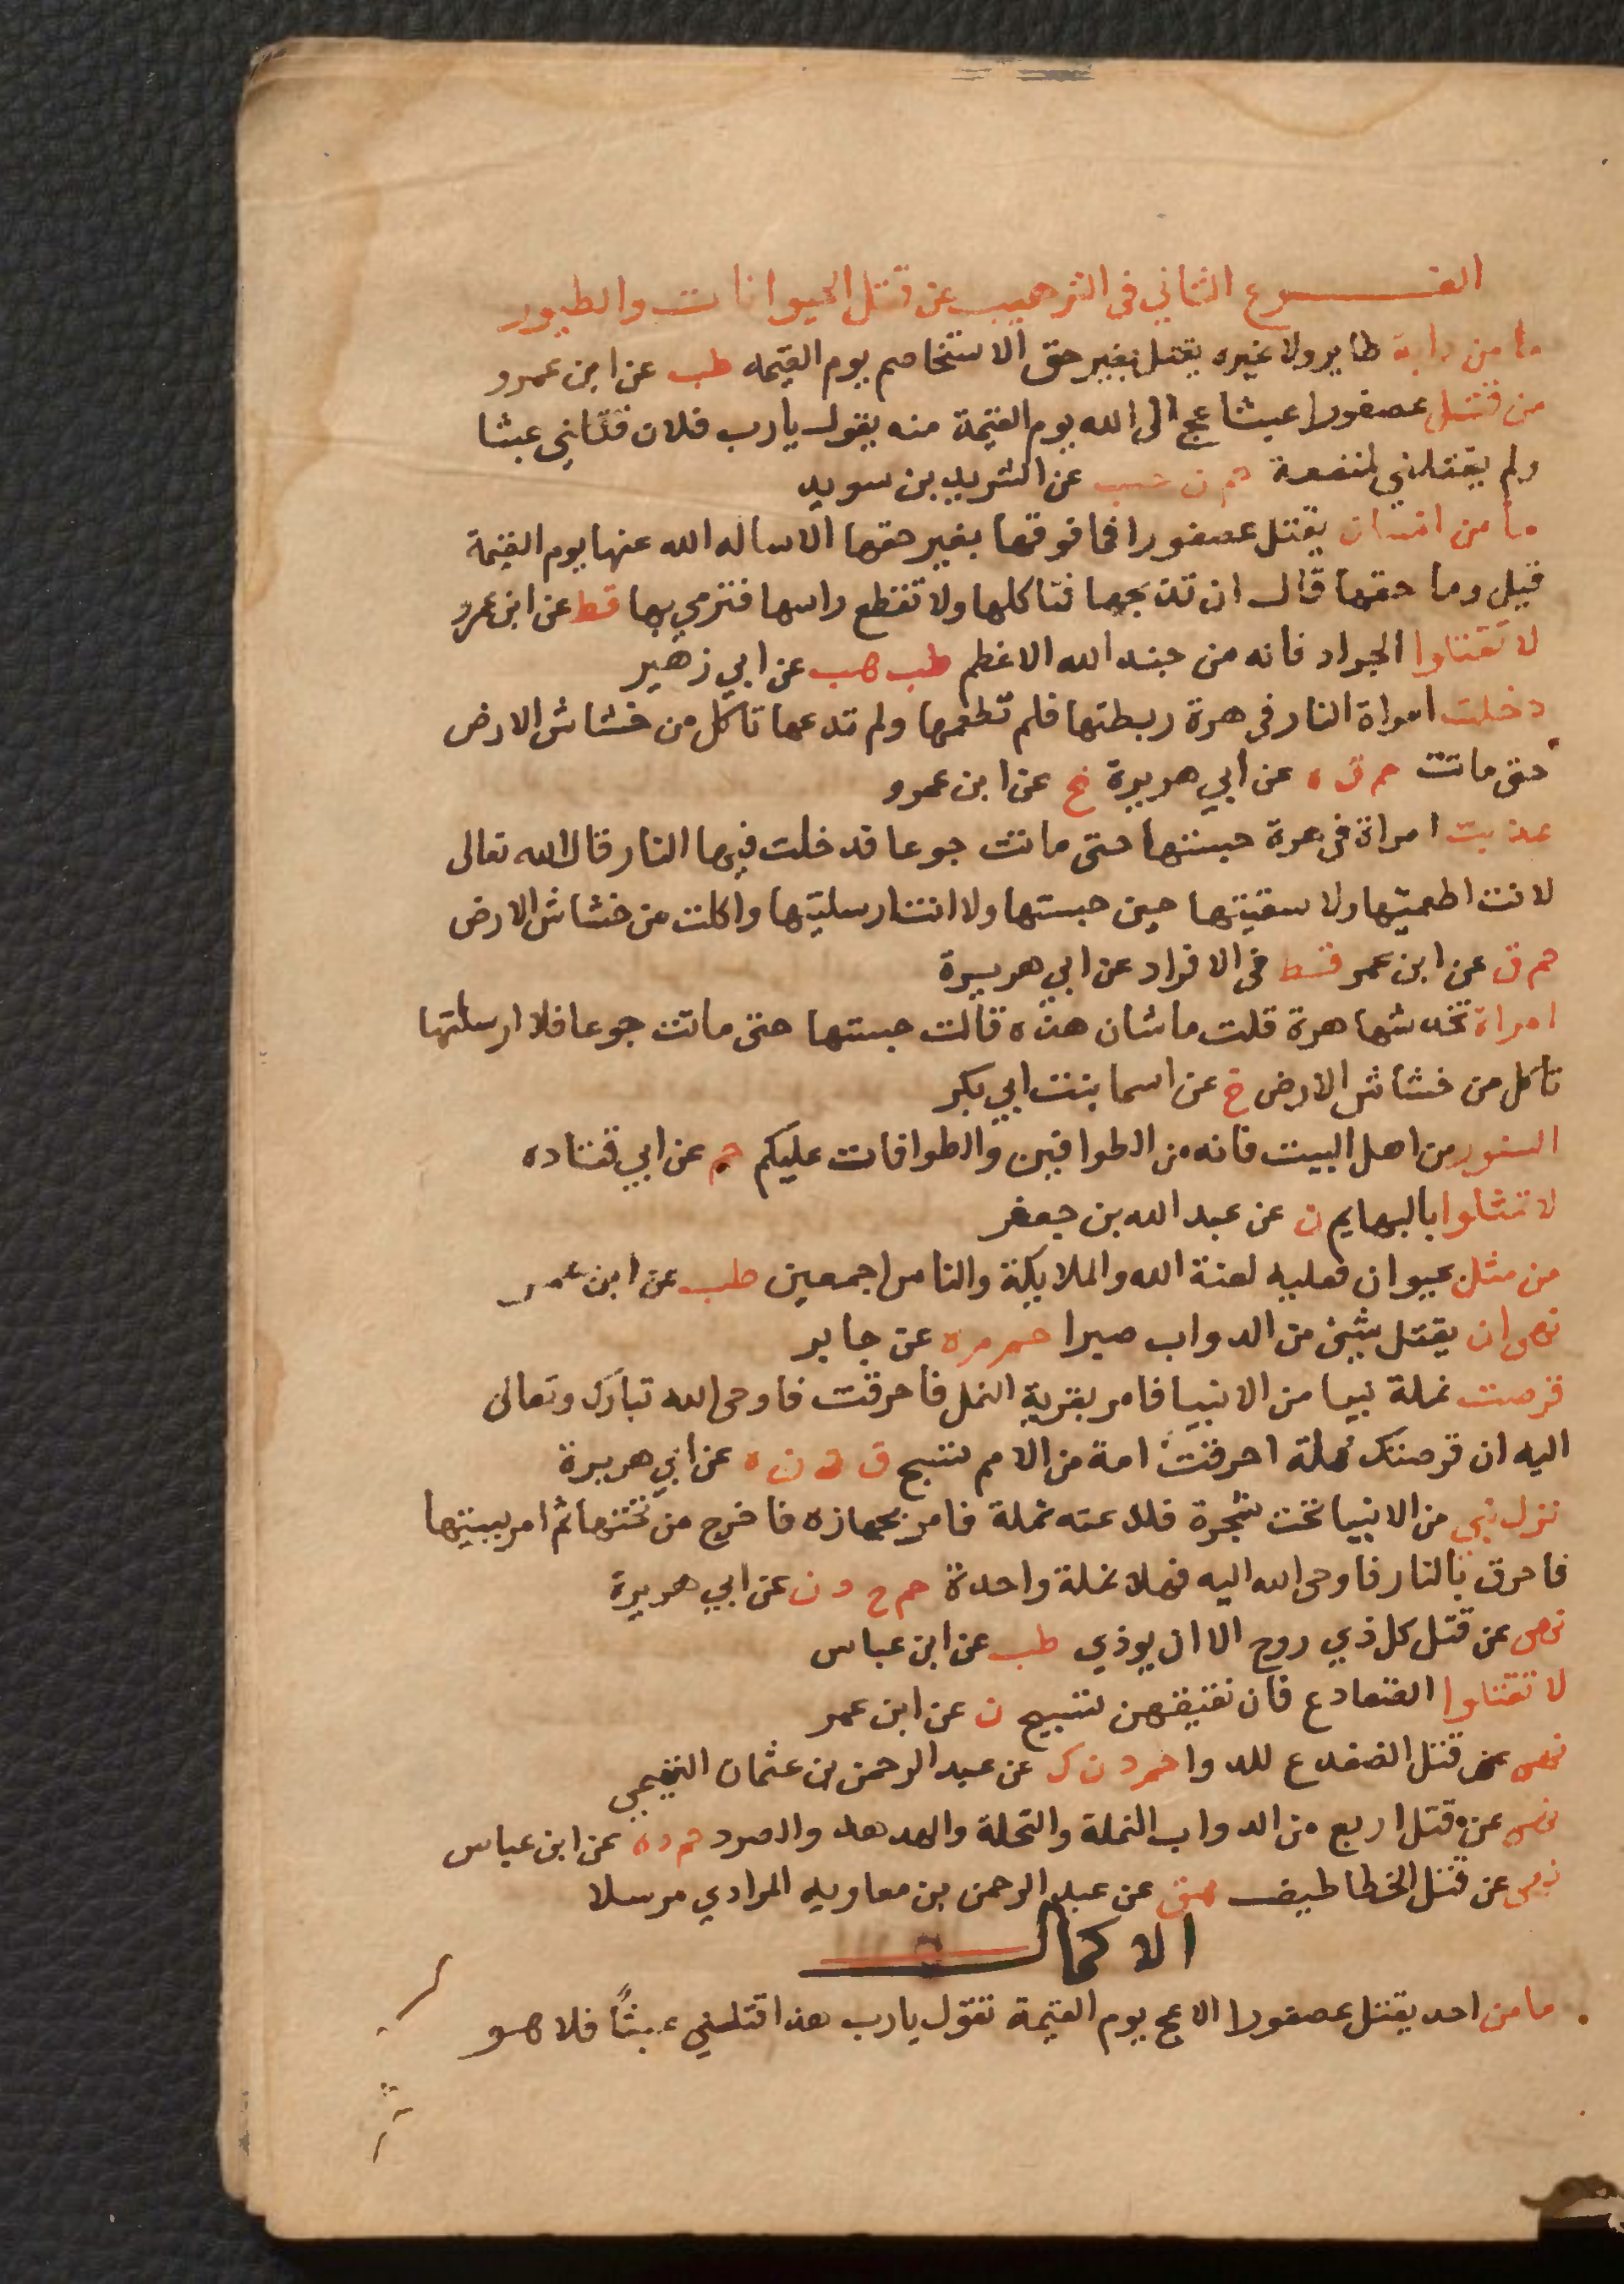 الفرع الثاني في الترهيب عن قتل الحيوانات والطيور
ما من دابة طاير ولا غيره يقتل بغير حق الا ستخاصم يوم القيمه طب عن ابن عمرو
من قتل عصفورا عبثا عج الى الله يوم القيمة منه يقول يا رب فلان قتلني عبثا
ولم يقتلني لمنفعة حم ن حب عن الشريد بن سويد
ما من انسان يقتل عصفورا فما فوقها بغير حقها الا ساله الله عنها يوم القيمة
قيل وما حقها قال ان تذبحها فتاكلها ولا تقطع راسها فترمي بها قط عن ابن عمرو
لا تقتلوا الجراد فانه من جند الله الاعظم طب هب عن ابي زهير
دخلت امراة النار في هرة ربطتها فلم تطعمها ولم تدعها تاكل من خشاش الارض
حتى ماتت حم ق ه عن ابي هريرة خ عن ابن عمرو
عذبت امراة في هرة حبستها حتى ماتت جوعا فدخلت فيها النار قال الله تعالى
لا انت اطعمتيها ولا سقيتها حين حبستها ولا انت ارسلتيها واكلت من خشاش الارض
حم ق عن ابن عمر قط في الافراد عن ابي هريرة
امراة تخدشها هرة قلت ما شان هذه قالت حبستها حتى ماتت جوعا فلا ارسلتها
تاكل من خشاش الارض خ عن اسما بنت ابي بكر
السنور من اهل البيت فانه من الطوافين والطوافات عليكم حم عن ابي قتاده
لا تمثلوا بالبهايم ن عن عبد الله بن جعفر
من مثل بحيوان فعليه لعنة الله والملايكة والناس اجمعين طب عن ابن عمر
نهى ان يقتل شيئ من الدواب صبرا حم م ه عن جابر
قرصت نملة نبيا من الانبيا فامر بقرية النمل فاحرقت فاوحى الله تبارك وتعالى
اليه ان قرصتك نملة احرقت امة من الامم تسبح ق د ن ه عن ابي هريرة
نزل نبي من الانبيا تحت شجرة فلدغته نملة فامر بجهازه فاخرج من تحتها ثم امر ببيتها
فاحرق بالنار فاوحى الله اليه فهلا نملة واحدة حم خ د ن عن ابي هريرة
نهى عن قتل كل ذي روح الا ان يوذي طب عن ابن عباس
لا تقتلوا الضفادع فان نقيقهن تسبيح ن عن ابن عمر
نهى عن قتل الضفدع للدوا حم د ن ك عن عبد الرحمن بن عثمان التيمي
نهى عن قتل اربع من الدواب النملة والنحلة والهدهد والصرد حم د ه عن ابن عباس
نهى عن قتل الخطاطيف هق عن عبد الرحمن بن معاويه المرادي مرسلا
الاكمال
ما من احد يقتل عصفورا الا عج يوم القيمة تقول يا رب هذا قتلني عبثًا فلا هو